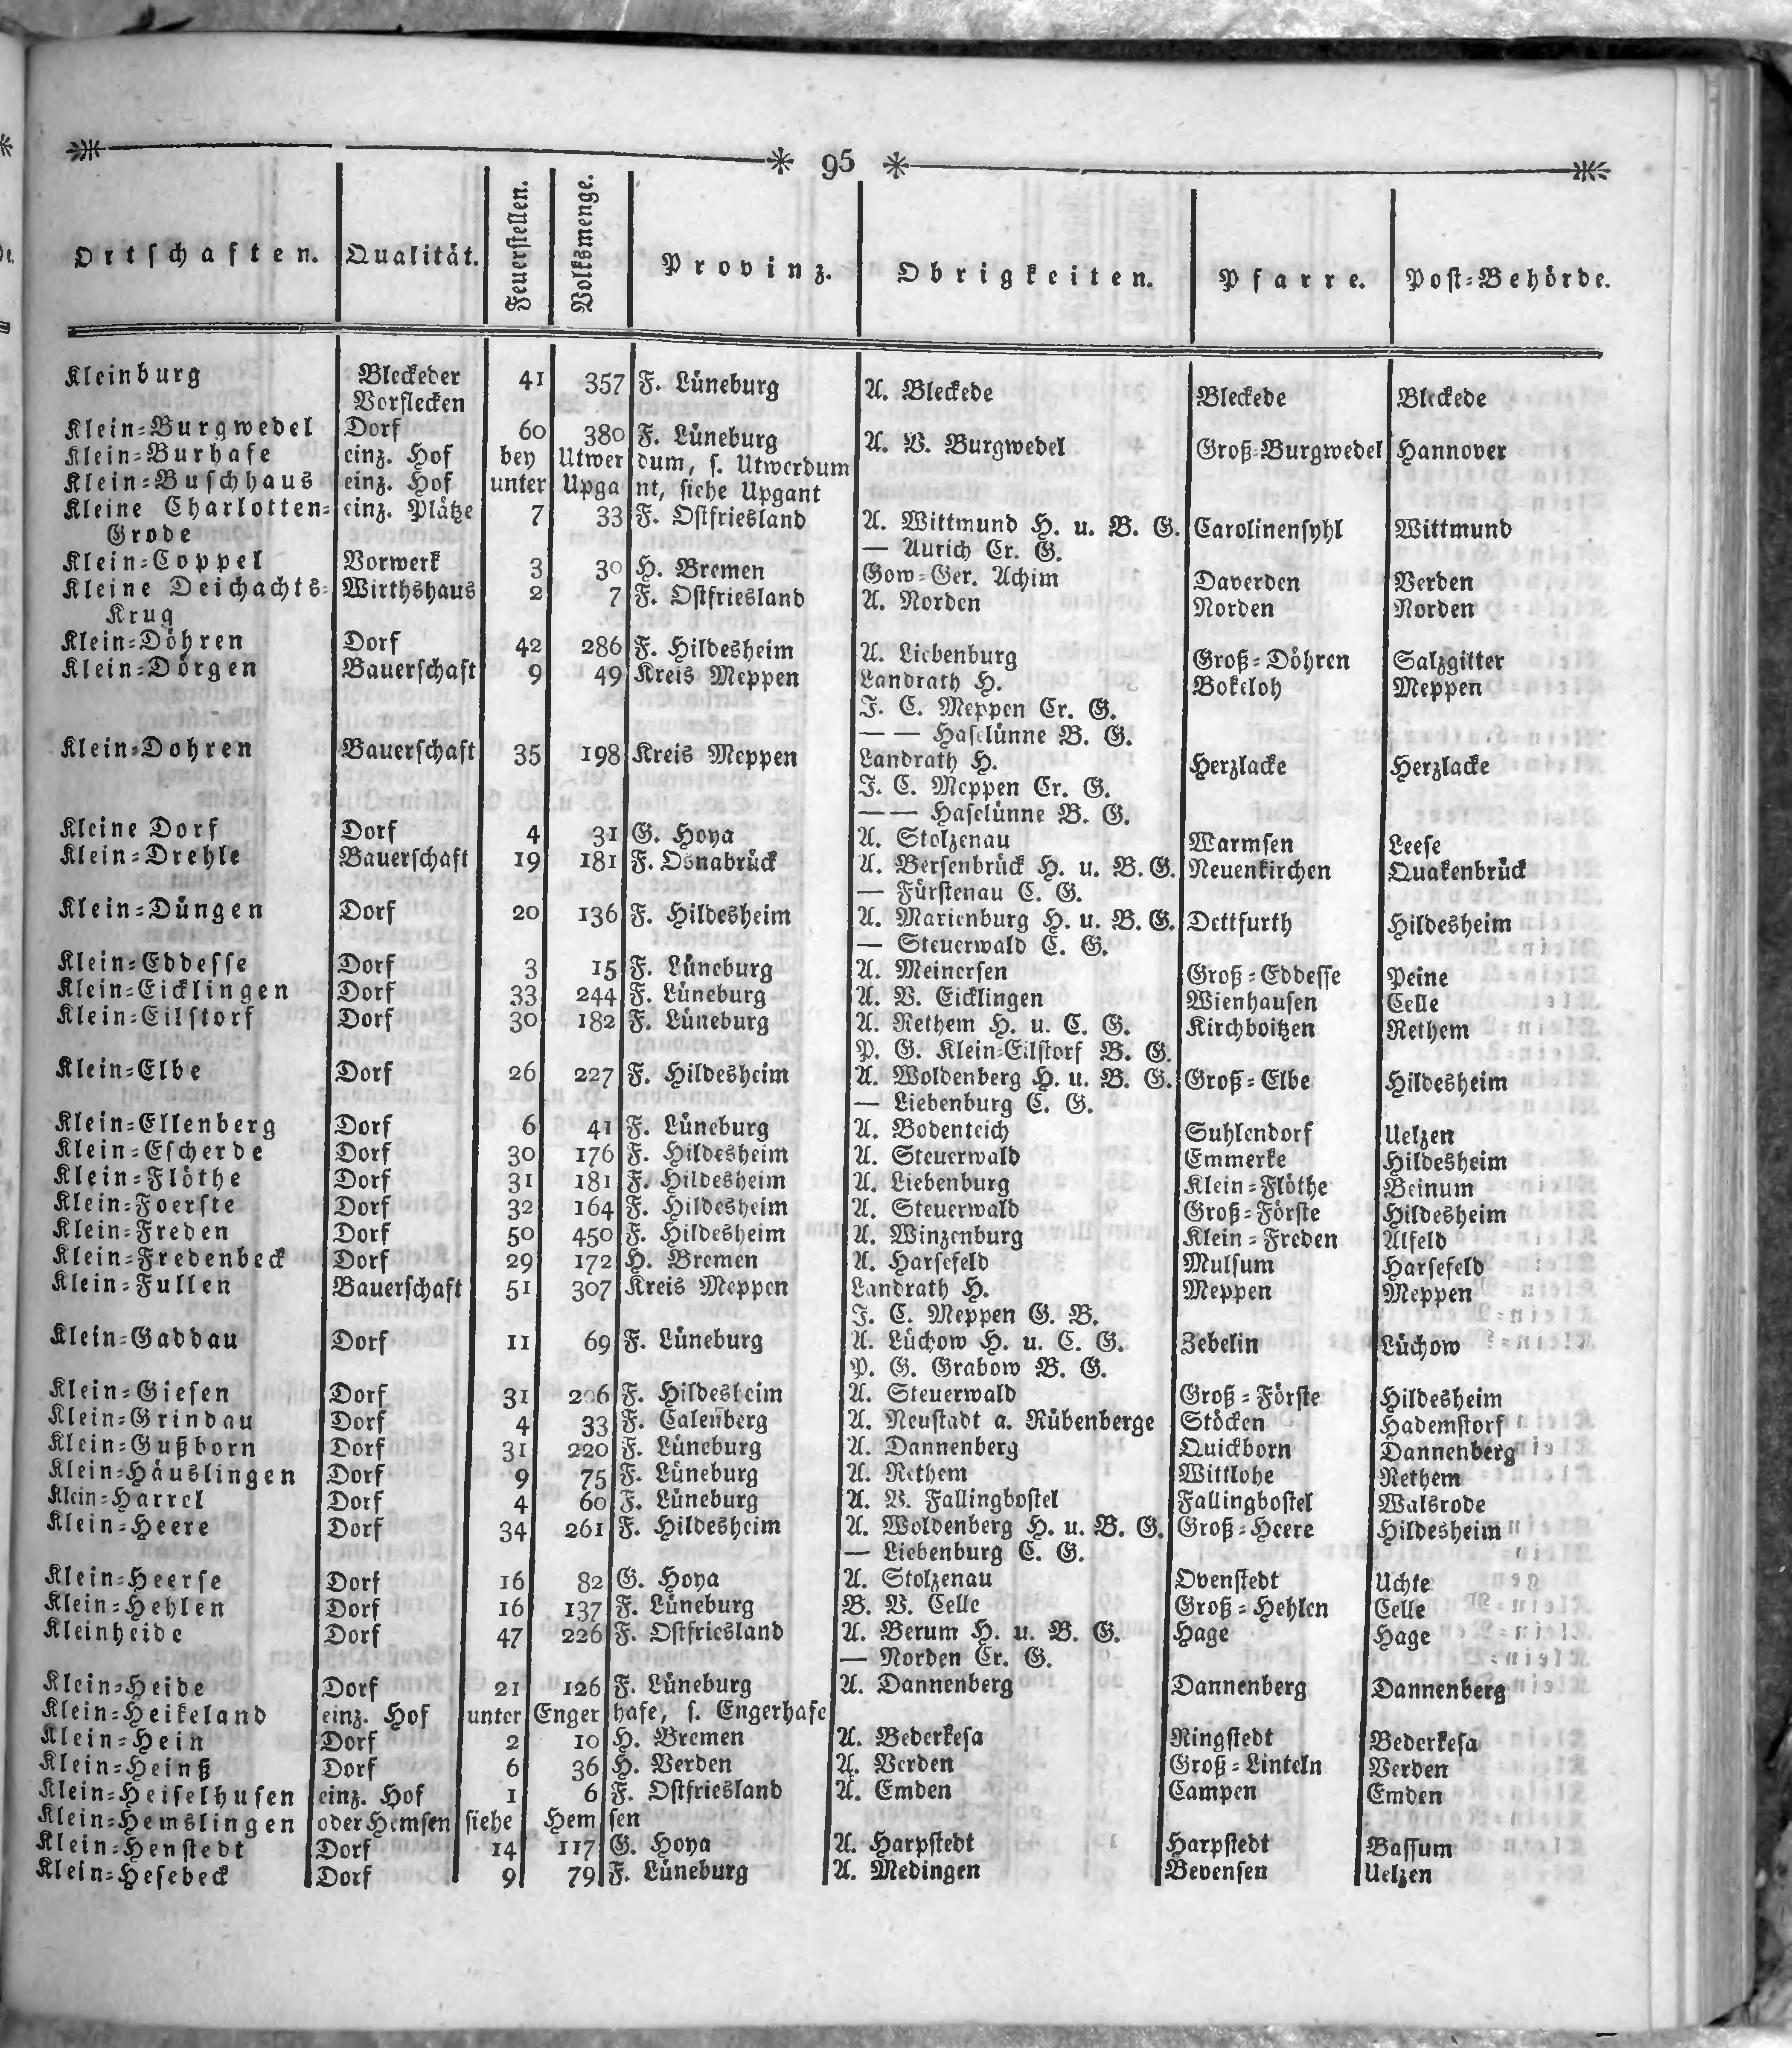 95
Ortschaften. Qualität. Feuerstellen. Volksmenge. Provinz. Obrigkeiten. Pfarre. Post-Behörde.
Kleinburg Bleckeder 41 357 F. Lüneburg A. Bleckede Bleckede Bleckede
Vorflecken
Klein-Burgwedel Dorf 60 380 F. Lüneburg A. V. Burgwedel Groß-Burgwedel Hannover
Klein-Burhafe einz. Hof bey Utwerdum, s. Utwerdum
Klein-Buschhaus einz. Hof unter Upgant, siehe Upgant
Kleine Charlotten- einz. Plätze 7 33 F. Ostfriesland A. Wittmund H. u. B. G. Carolinensyhl Wittmund
Grode — Aurich Cr. G.
Klein-Coppel Vorwerk 3 30 H. Bremen Gow-Ger. Achim Daverden Verden
Kleine Deichachts- Wirthshaus 2 7 F. Ostfriesland A. Norden Norden Norden
Krug
Klein-Döhren Dorf 42 286 F. Hildesheim A. Liebenburg Groß-Döhren Salzgitter
Klein-Dörgen Bauerschaft 9 49 Kreis Meppen Landrath H. Bokeloh Meppen
J. C. Meppen Cr. G.
— — Haselünne B. G.
Klein-Dohren Bauerschaft 35 198 Kreis Meppen Landrath H. Herzlacke Herzlacke
J. C. Meppen Cr. G.
— — Haselünne B. G.
Kleine Dorf Dorf 4 31 G. Hoya A. Stolzenau Warmsen Leese
Klein-Drehle Bauerschaft 19 181 F. Osnabrück A. Bersenbrück H. u. B. G. Neuenkirchen Quakenbrück
— Fürstenau C. G.
Klein-Düngen Dorf 20 136 F. Hildesheim A. Marienburg H. u. B. G. Dettfurth Hildesheim
— Steuerwald C. G.
Klein-Eddesse Dorf 3 15 F. Lüneburg A. Meinersen Groß-Eddesse Peine
Klein-Eicklingen Dorf 33 244 F. Lüneburg A. V. Eicklingen Wienhausen Celle
Klein-Eilstorf Dorf 30 182 F. Lüneburg A. Rethem H. u. C. G. Kirchboitzen Rethem
P. G. Klein-Eilstorf B. G.
Klein-Elbe Dorf 26 227 F. Hildesheim A. Woldenberg H. u. B. G. Groß-Elbe Hildesheim
— Liebenburg C. G.
Klein-Ellenberg Dorf 6 41 F. Lüneburg A. Bodenteich Suhlendorf Uelzen
Klein-Escherde Dorf 30 176 F. Hildesheim A. Steuerwald Emmerke Hildesheim
Klein-Flöthe Dorf 31 181 F. Hildesheim A. Liebenburg Klein-Flöthe Beinum
Klein-Foerste Dorf 32 164 F. Hildesheim A. Steuerwald Groß-Förste Hildesheim
Klein-Freden Dorf 50 450 F. Hildesheim A. Winzenburg Klein-Freden Alfeld
Klein-Fredenbeck Dorf 29 172 H. Bremen A. Harsefeld Mulsum Harsefeld
Klein-Fullen Bauerschaft 51 307 Kreis Meppen Landrath H. Meppen Meppen
J. C. Meppen G. B.
Klein-Gaddau Dorf 11 69 F. Lüneburg A. Lüchow H. u. C. G. Zebelin Lüchow
P. G. Grabow B. G.
Klein-Giesen Dorf 31 F. Hildesheim A. Steuerwald Groß-Förste Hildesheim
Klein-Grindau Dorf 4 33 F. Calenberg A. Neustadt a. Rübenberge Stöcken Hademstorf
Klein-Gußborn Dorf 31 220 F. Lüneburg A. Dannenberg Quickborn Dannenberg
Klein-Häuslingen Dorf 9 75 F. Lüneburg A. Rethem Wittlohe Rethem
Klein-Harrel Dorf 4 60 F. Lüneburg A. V. Fallingbostel Fallingbostel Walsrode
Klein-Heere Dorf 34 261 F. Hildesheim A. Woldenberg H. u. B. G. Groß-Heere Hildesheim
— Liebenburg C. G.
Klein-Heerse Dorf 16 82 G. Hoya A. Stolzenau Ovenstedt Uchte
Klein-Hehlen Dorf 16 137 F. Lüneburg B. V. Celle Groß-Hehlen Celle
Kleinheide Dorf 47 226 F. Ostfriesland A. Berum H. u. B. G. Hage Hage
— Norden Cr. G.
Klein-Heide Dorf 21 126 F. Lüneburg A. Dannenberg Dannenberg Dannenberg
Klein-Heikeland einz. Hof unter Engerhafe, s. Engerhafe
Klein-Hein Dorf 2 10 H. Bremen A. Bederkesa Ringstedt Bederkesa
Klein-Heinß Dorf 6 36 H. Verden A. Verden Groß-Linteln Verden
Klein-Heiselhusen einz. Hof 1 6 F. Ostfriesland A. Emden Campen Emden
Klein-Hemslingen oder Hemsen siehe Hemsen
Klein-Henstedt Dorf 14 117 G. Hoya A. Harpstedt Harpstedt Bassum
Klein-Hesebeck Dorf 9 79 F. Lüneburg A. Medingen Bevensen Uelzen